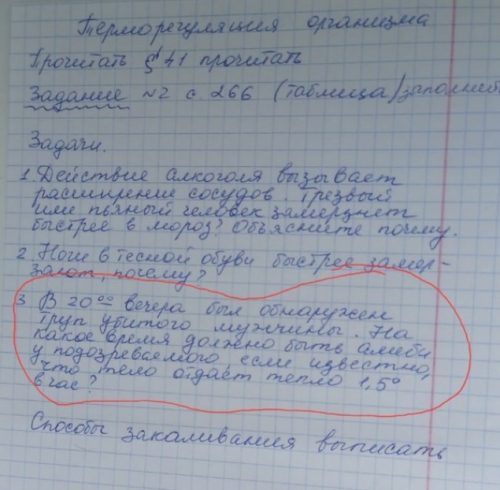 Терморегуляция организма
Прочитать § 41 прочитать
Задание №2 с. 266 (таблица) заполнит
Задачи.
1. Действие алкоголя вызывает
расширение сосудов. Трезвый
или пьяный человек замерзнет
быстрее в мороз? Объясните почему.
2. Ноги в тесной обуви быстрее замер-
зают, почему?
3. В 20⁰⁰ вечера был обнаружен
труп убитого мужчины. На
какое время должно быть алиби
у подозреваемого если известно,
что тело отдает тепло 1,5°
в час?
Способы закаливания выписать